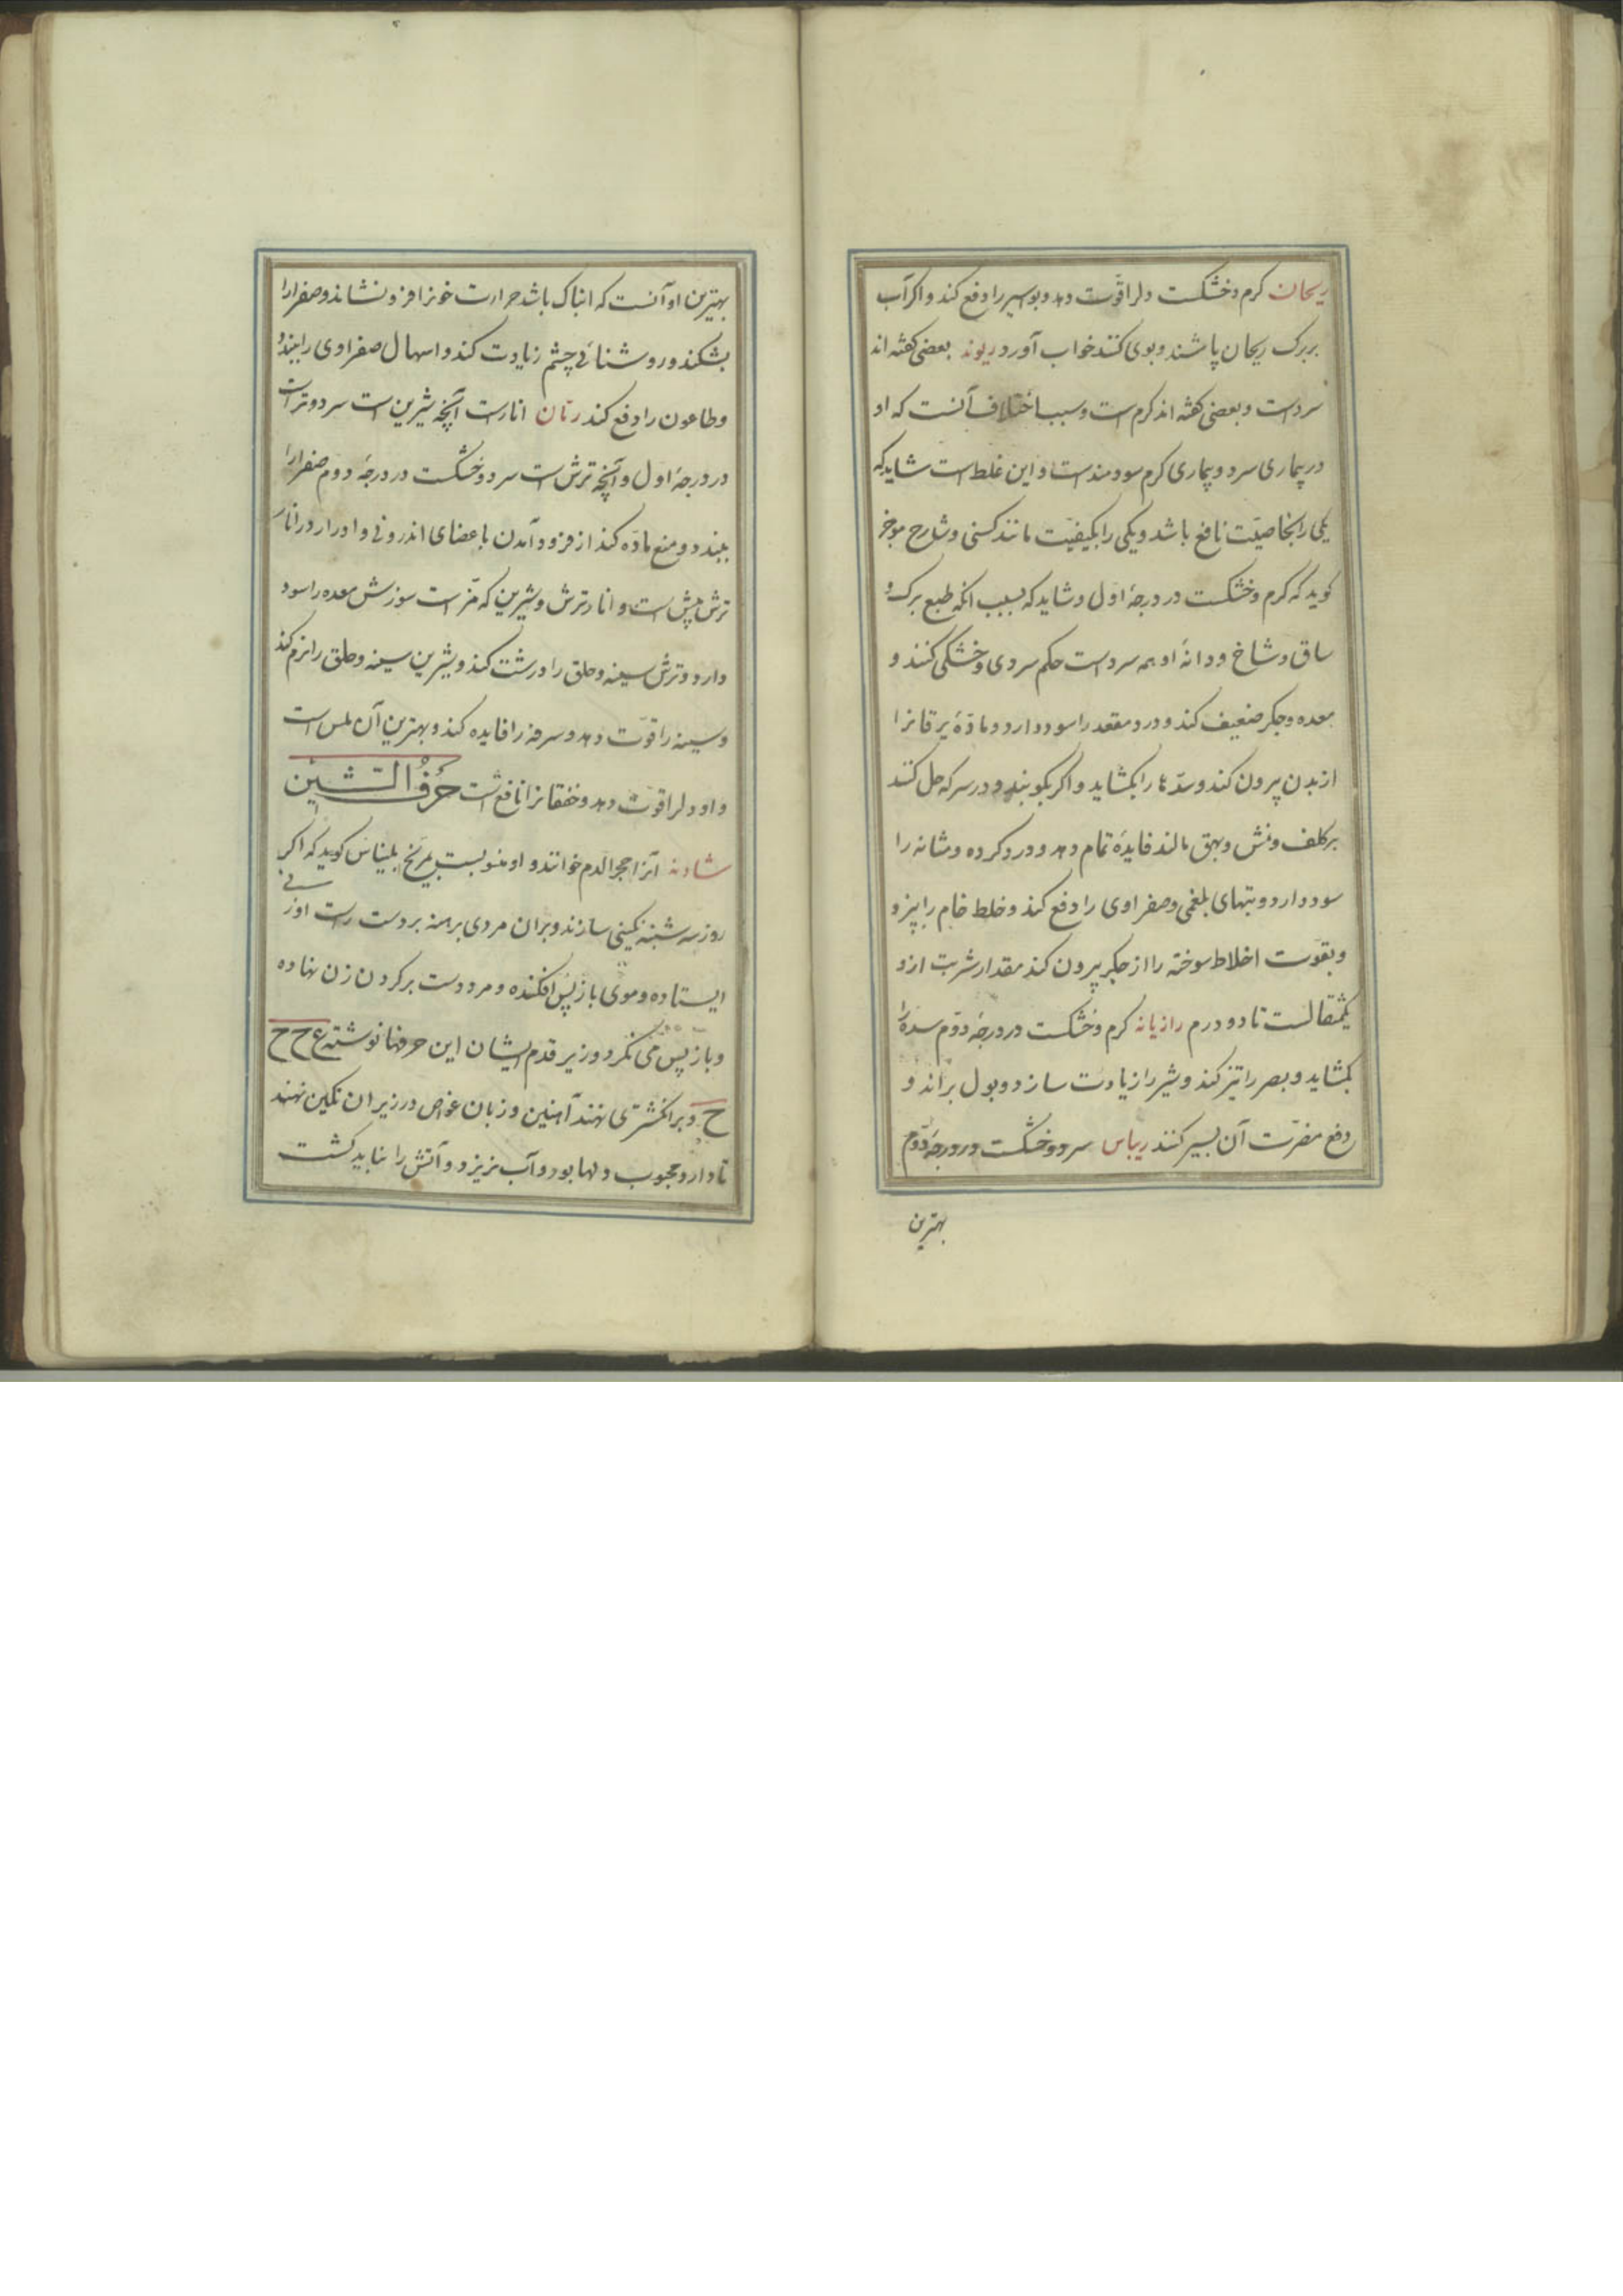 ریحان کرم و خشکست دلرا قوّت دهد و بواسیر را دفع کند و اکر آب
بر برک ریحان پاشند و بوی کنند خواب آورد ریوند بعضی کفته اند
سردست و بعضی کفته اند کرم است و سبب اختلاف آنست که او
در بیماری سرد و بیماری کرم سودمند است و این غلط است شاید که
یکی را بخاصیّت نافع باشد و یکی را بکیفیّت مانند کسنی و شارح موجز
کوید که کرم و خشکست در درجهٔ اول و شاید که بسبب انکه طبع برک و
ساق و شاخ و دانهٔ او همه سردست حکم سردی و خشکی کنند و
معده و جکر ضعیف کند و درد مقعد را سود دارد و مادّهٔ یرقانرا
از بدن بیرون کند و سدّها را بکشاید و اکر بکوبند و در سرکه حل کنند
بر کلف و نمش و بهق مالند فایدهٔ تمام دهد و درد کرده و مثانه را
سود دارد و تبهای بلغمی و صفراوی را دفع کند و خلط خام را بپزد
و بقوّت اخلاط سوخته را از جکر بیرون کند مقدار شربت ازو
یکمثقالست تا دو درم رازیانه کرم و خشکست در درجهٔ دوّم سده را
بکشاید و بصر را تیز کند و شیر را زیادت سازد و بول براند و
دفع مضرّت آن بسیر کنند ریباس سرد و خشکست در درجهٔ دوّم
بهترین
بهترین او آنست که ابناک باشد حرارت خونرا فرو نشاند و صفرارا
بشکند و روشنائی چشم زیادت کند و اسهال صفراوی را ببندد
و طاعون را دفع کند رمّان انارست آنچه شیرین است سرد و ترست
در درجهٔ اول و آنچه ترش است سرد و خشکست در درجهٔ دوم صفرارا
ببندد و منع مادّه کند از فرود آمدن باعضای اندرونی و ادرار در انار
ترش بیش است و انار ترش و شیرین که مزّ است سوزش معده را سود
دارد و ترش سینه و حلق را درشت کند و شیرین سینه و حلق را نرم کند
و سینه را قوّت دهد و سرفه را فایده کند و بهترین آن ملس است
و او دلرا قوّت دهد و خفقانرا نافع است حَرفُ الشّین
شادنه آنرا حجر الدم خوانند و او منسوبست بمریخ بلیناس کوید که اکر
روز سه شنبه نکینی سازند و بران مردی برهنه بر دست راست او زنی
ایستاده و موی باز پس افکنده و مرد دست بر کردن زن نهاده
و باز پس می نکرد و زیر قدم ایشان این حرفها نوشته ع ح ح
ح و بر انکشتری نهند آهنین و زبان غواص در زیر ان نکین نهند
تا دارد محبوب دلها بود و آب نریزد و آتش را نباید کشت